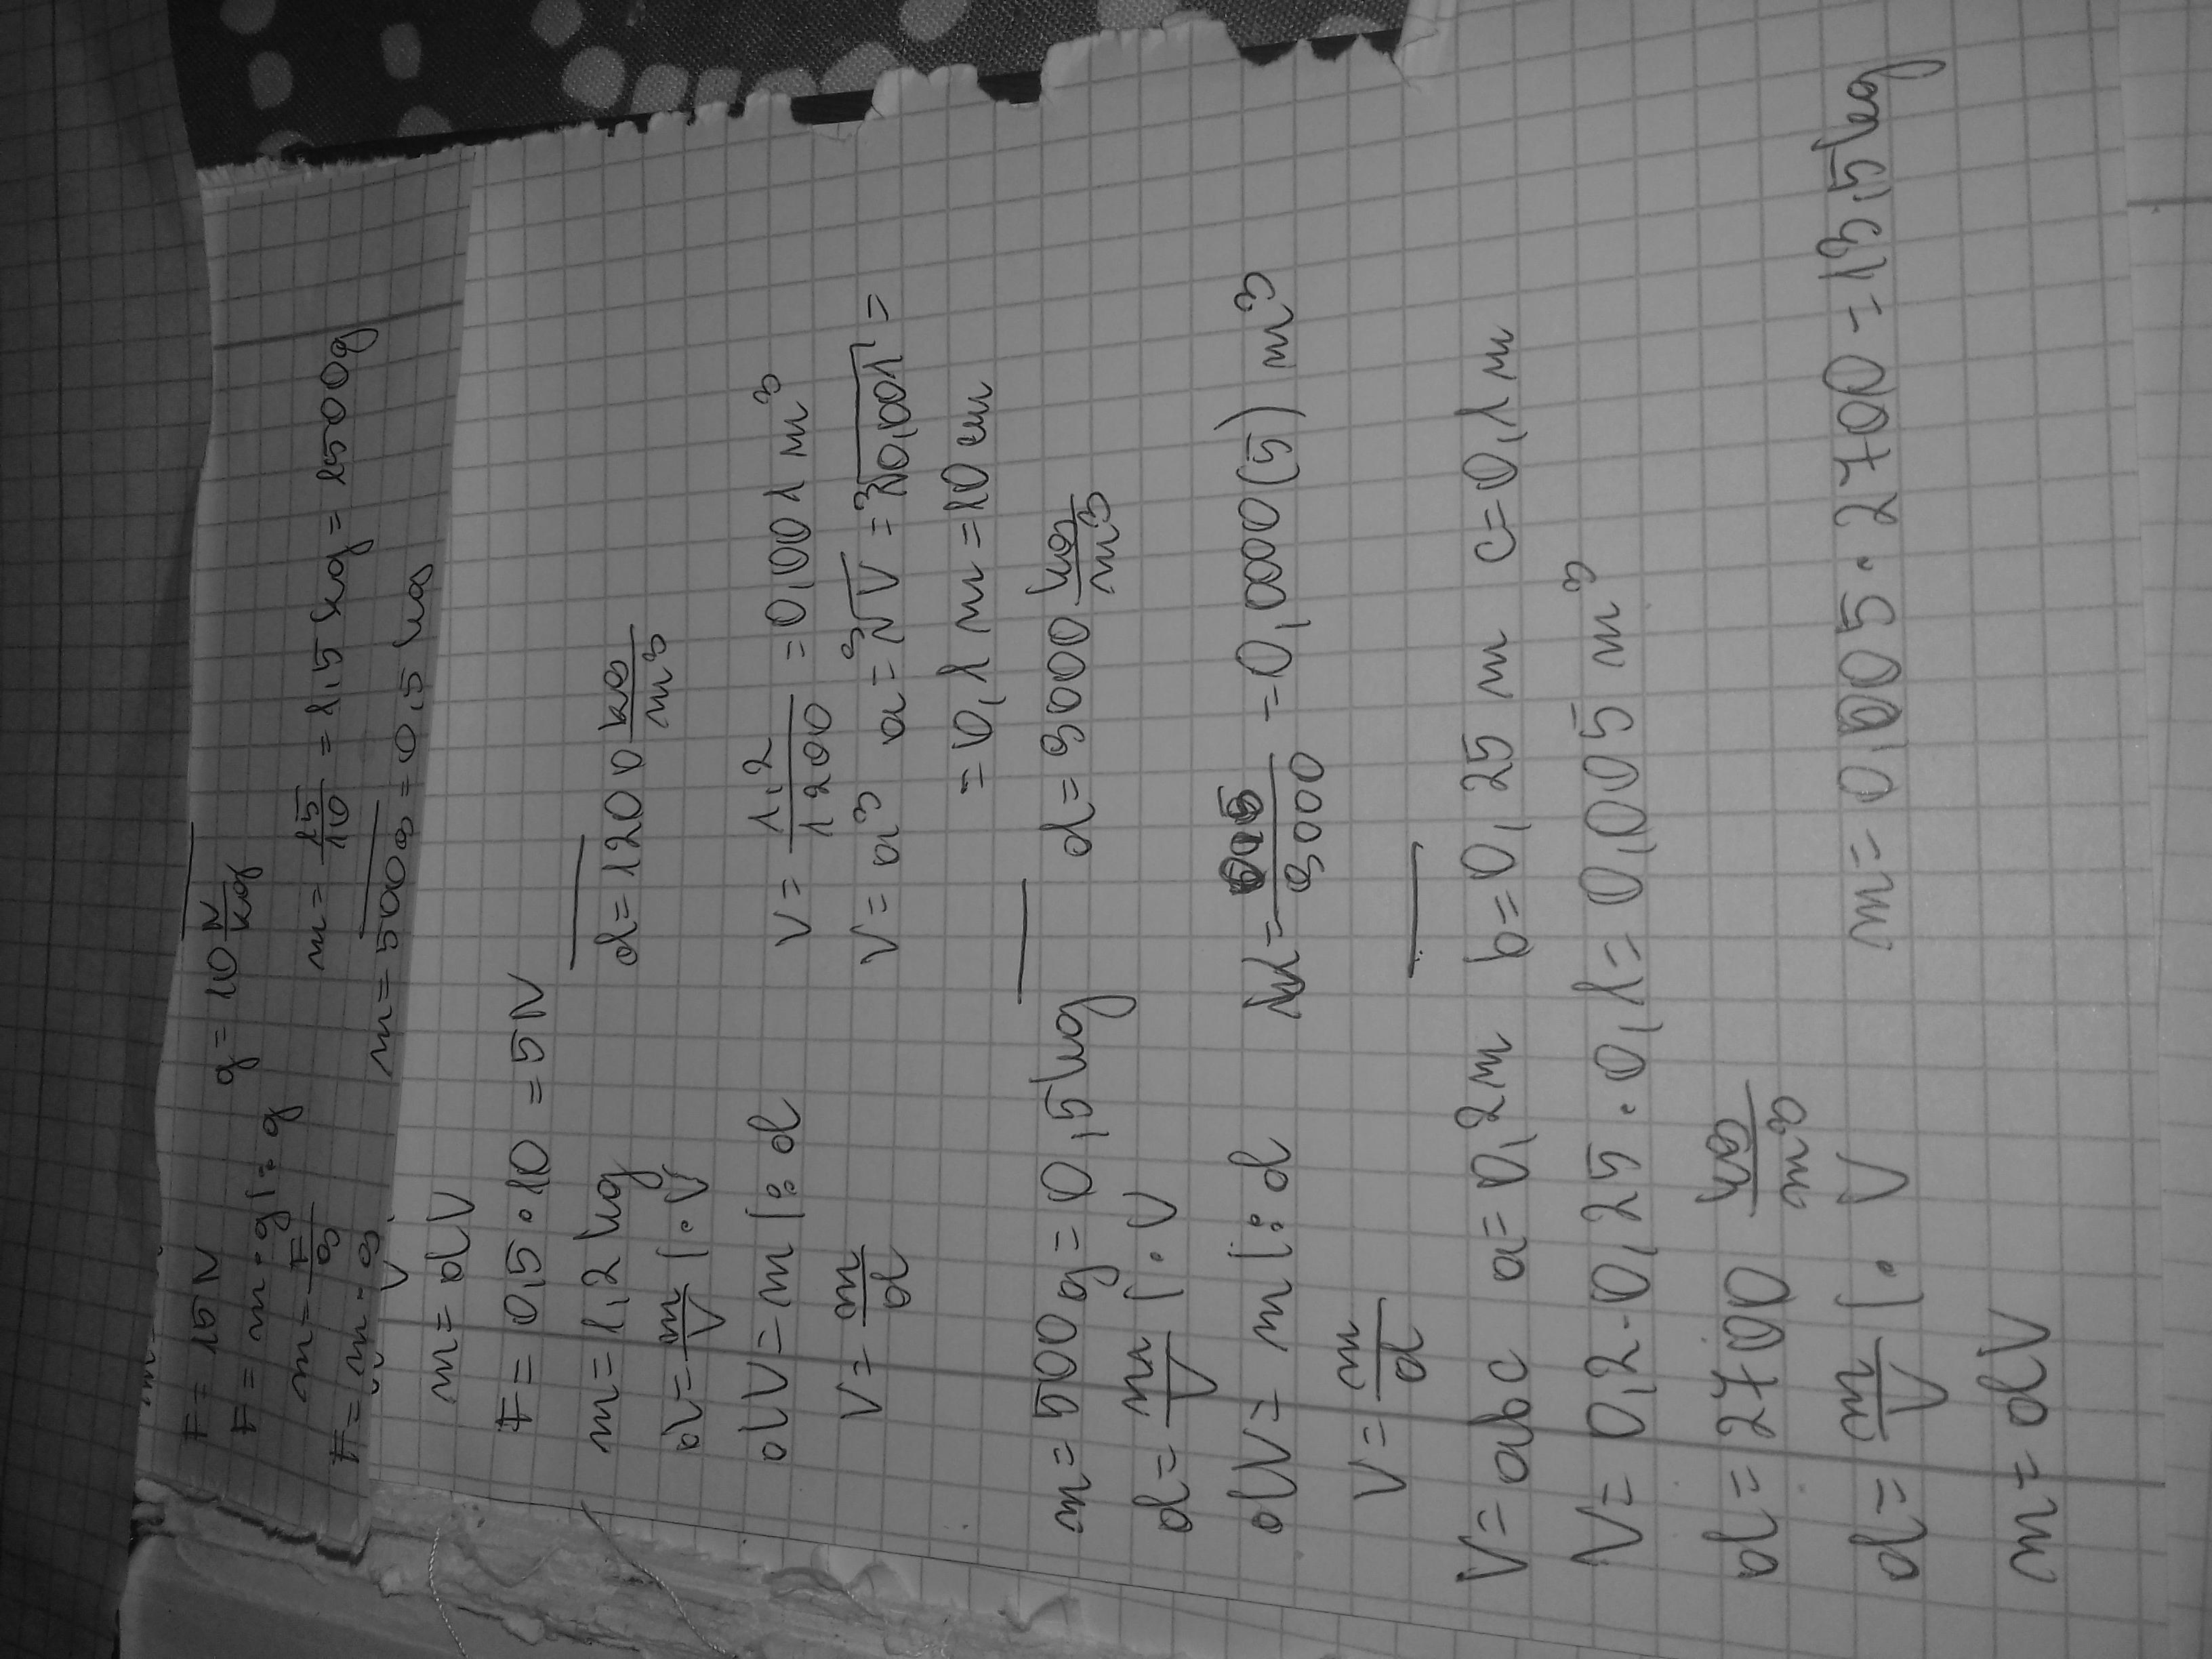 F = 15 N    g = 10 N/kg
F = m · g |: g
m = F/g    m = 15/10 = 1,5 kg = 1500g
F = m · g    m = 500g = 0,5 kg
m = dV
F = 0,5 · 10 = 5N
m = 1,2 kg    d = 1200 kg/m³
d = m/V |· V
dV = m |: d    V = 1,2/1200 = 0,001 m³
V = m/d    V = a³  a = ³√V = ³√0,001 =
= 0,1 m = 10 cm
m = 500 g = 0,5 kg    d = 9000 kg/m³
d = m/V |· V
dV = m |: d    = 0,5/9000 = 0,0000(5) m³
V = m/d
V = abc  a = 0,2m  b = 0,25 m  c = 0,1 m
V = 0,2 · 0,25 · 0,1 = 0,005 m³
d = 2700 kg/m³
d = m/V |· V    m = 0,005 · 2700 = 13,5 kg
m = dV